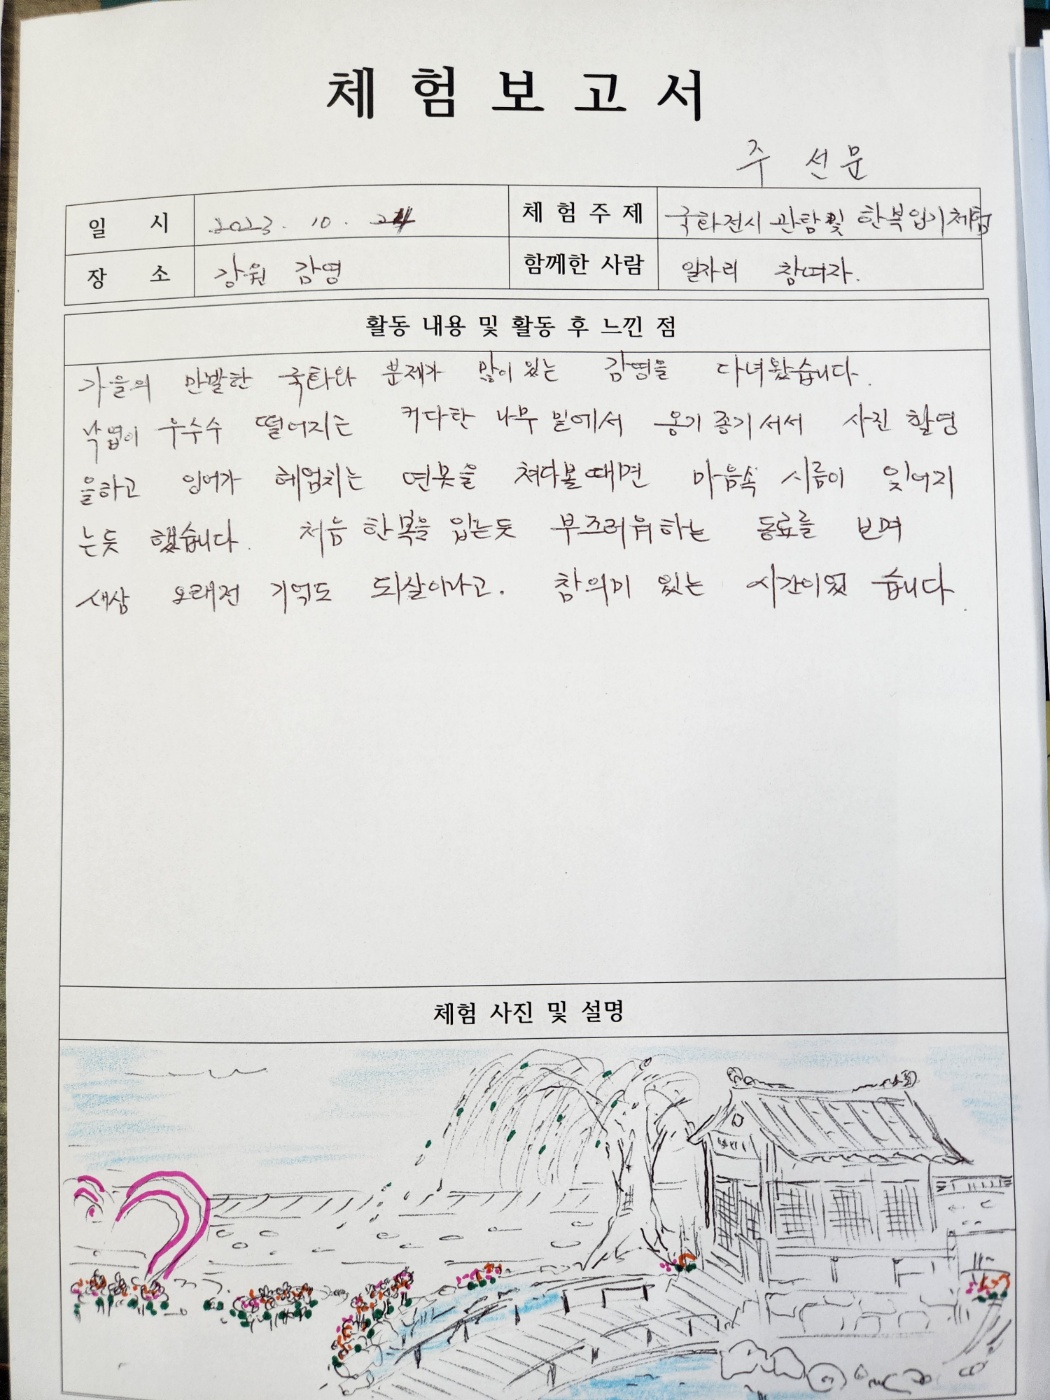 체험보고서
주 선문
일 시 2023. 10. 24 체험주제 국화전시 관람 및 한복입기체험
장 소 강원 감영 함께한 사람 일자리 참여자.
활동 내용 및 활동 후 느낀 점
가을의 만발한 국화와 분제가 많이 있는 감영을 다녀왔습니다.
낙엽이 우수수 떨어지는 커다란 나무 밑에서 옹기종기 서서 사진 촬영
을하고 잉어가 헤엄치는 연못을 쳐다볼때면 마음속 시름이 잊어지
는듯 했습니다. 처음 한복을 입는듯 부끄러워하는 동료를 보며
새삼 오래전 기억도 되살아나고. 참의미 있는 시간이었 습니다.
체험 사진 및 설명